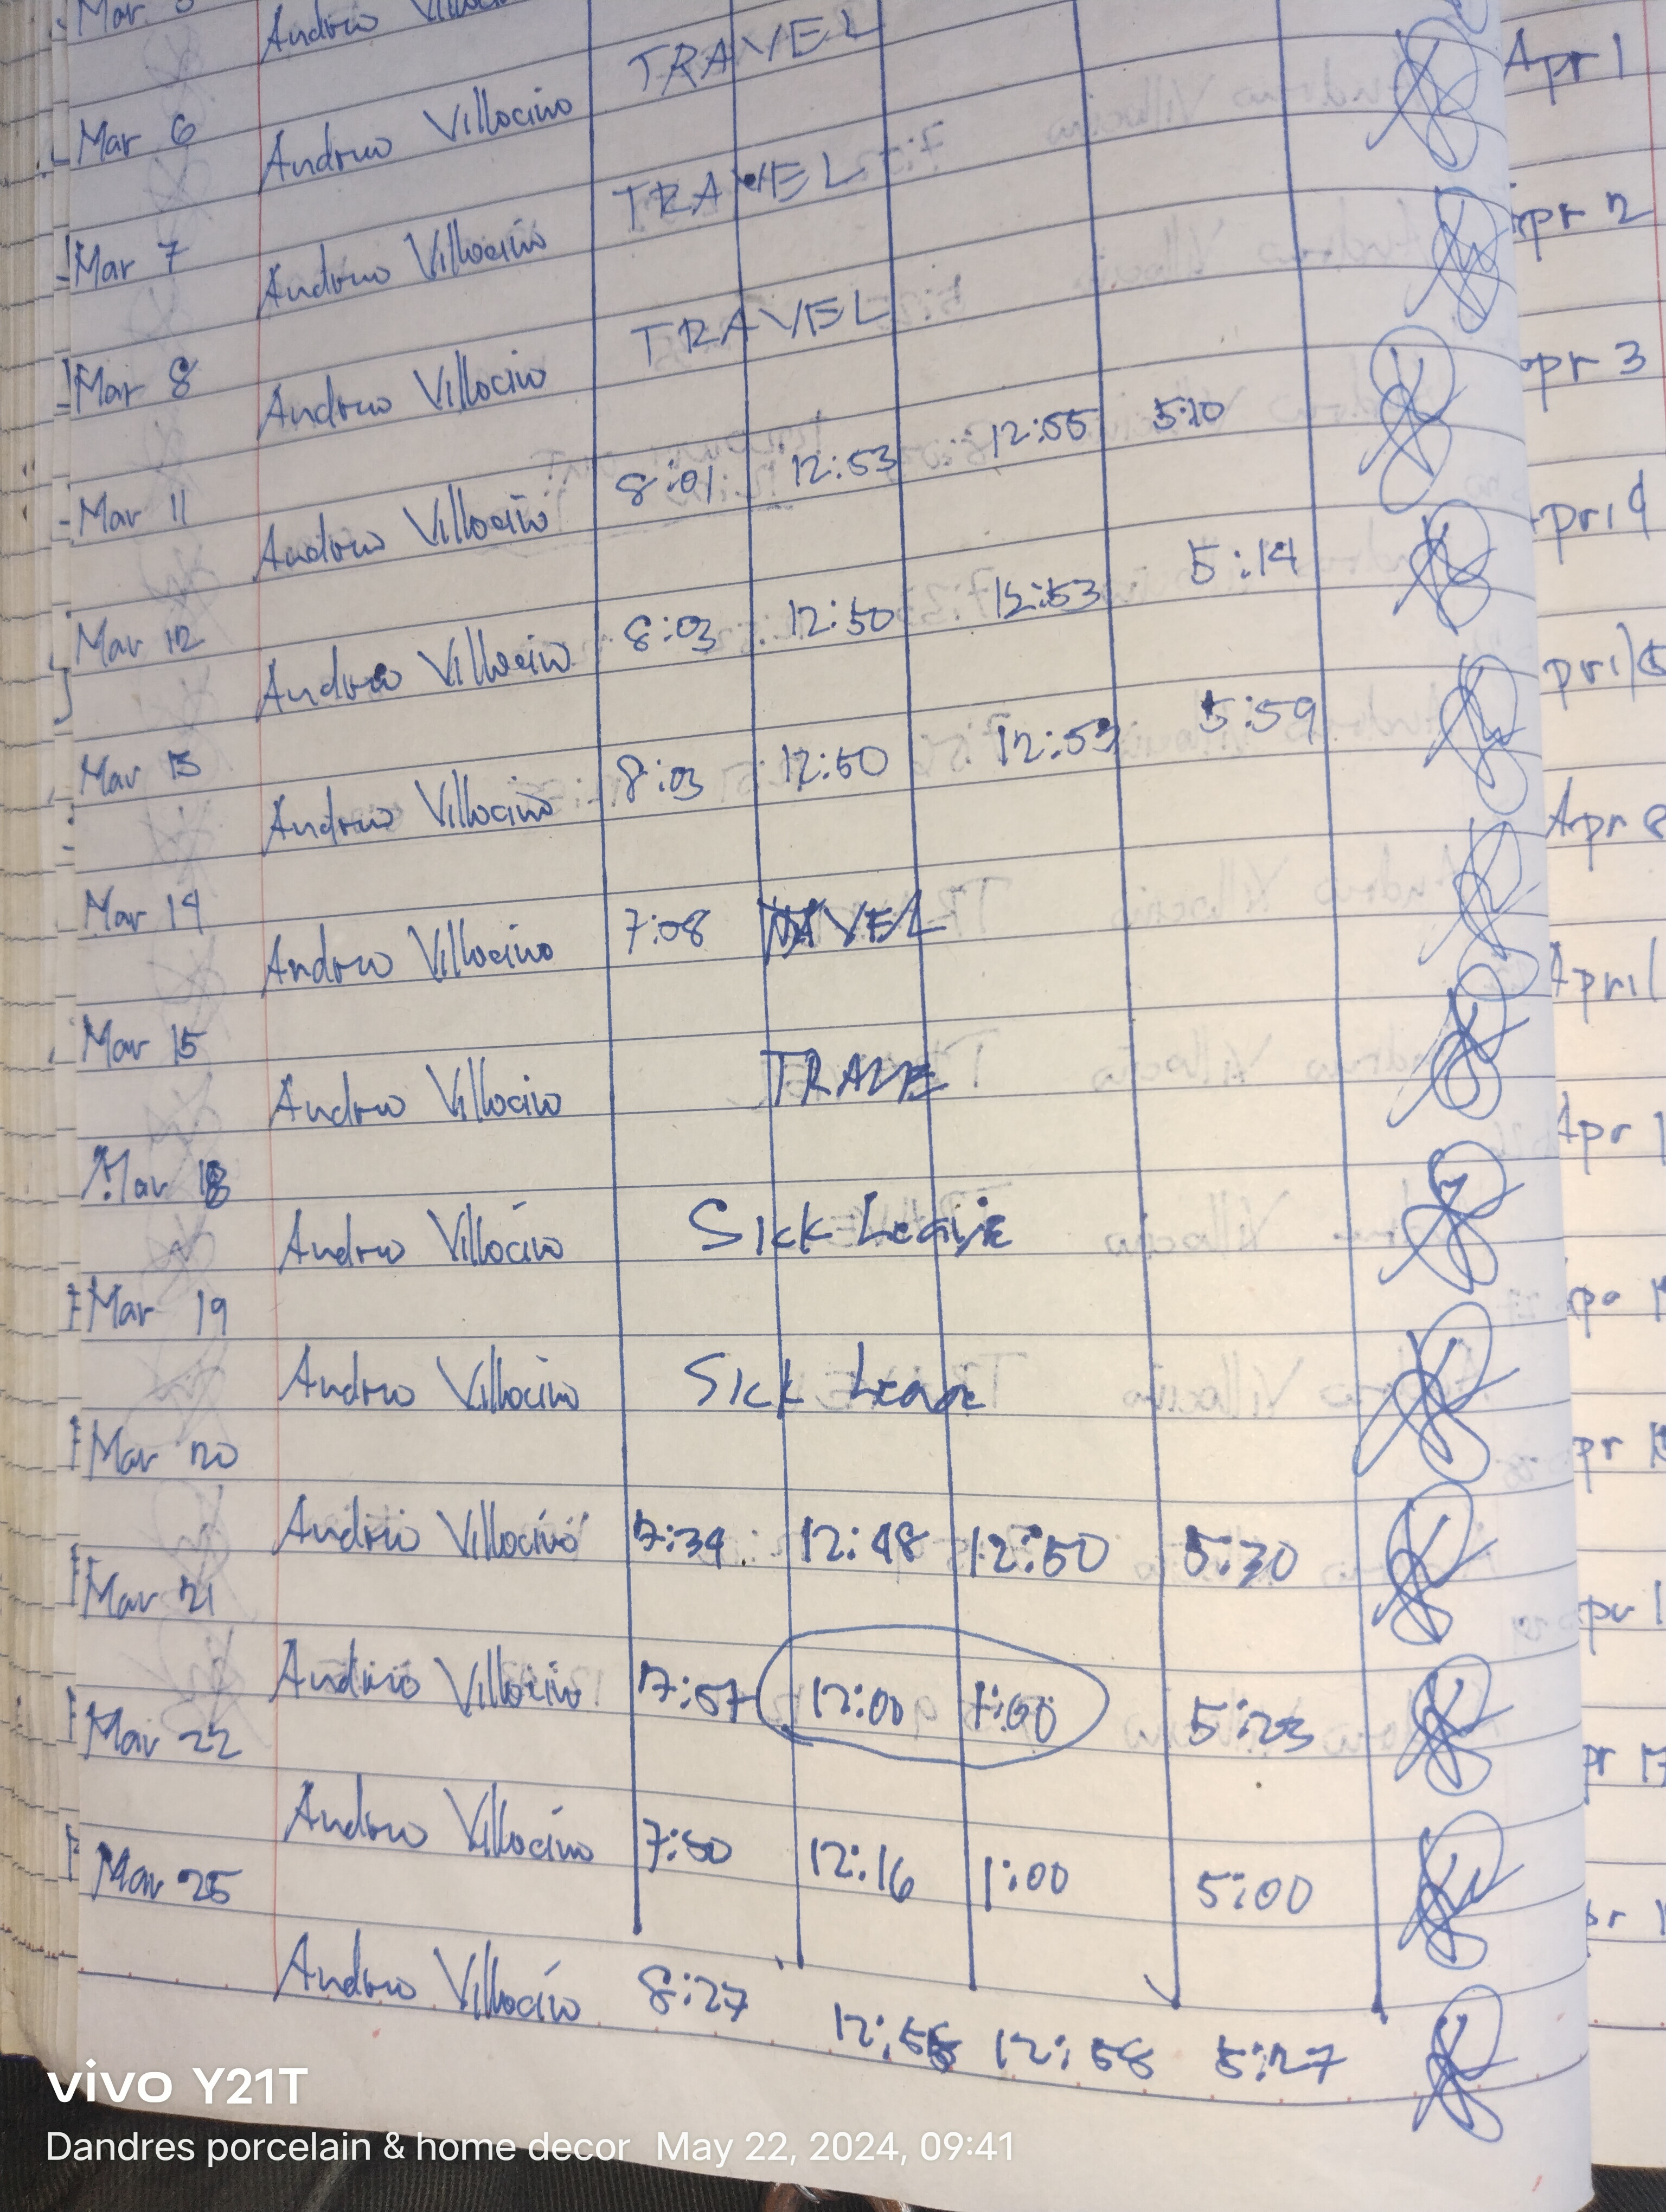 Mar 5 Andrew Villocino TRAVEL
Mar 6 Andrew Villocino TRAVEL
Mar 7 Andrew Villocino TRAVEL
Mar 8 Andrew Villocino 8:01 12:53 12:55 5:10
Mar 11 Andrew Villocino 8:03 12:50 12:53 5:14
Mar 12 Andrew Villocino 8:03 12:50 12:53 5:59
Mar 13 Andrew Villocino 7:08 TRAVEL
Mar 14 Andrew Villocino TRAVE
Mar 15 Andrew Villocino Sick Leave
Mar 18 Andrew Villocino Sick Leave
Mar 19 Andrew Villocino 7:34 12:48 12:50 5:30
Mar 20 Andrew Villocino 7:57 12:00 1:00 5:23
Mar 21 Andrew Villocino 7:50 12:16 1:00 5:00
Mar 22 Andrew Villocino 8:27 12:58 5:27
Mar 25
Apr 1
pr 2
pr 3
pril 4
pril 5
Apr 8
April
Apr 1
pr 17
vivo Y21T
Dandres porcelain & home decor May 22, 2024, 09:41